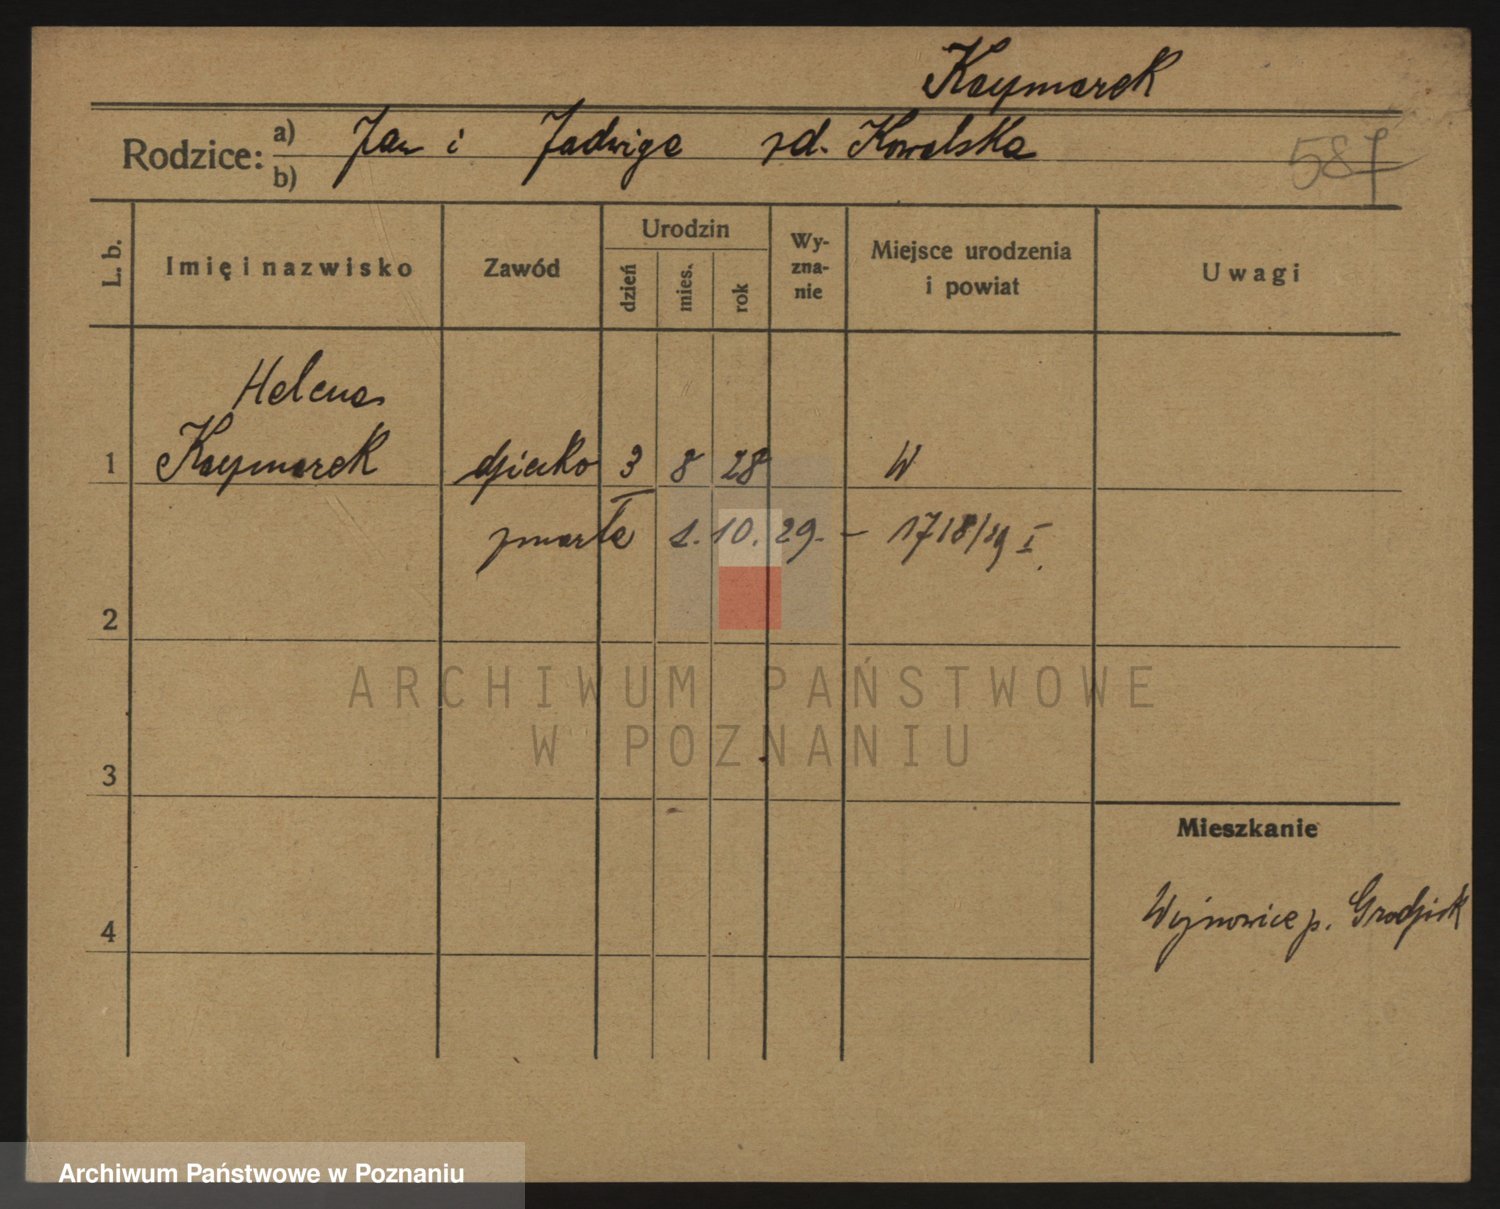 Kaczmarek
Rodzice: a) b) Jan i Jadwiga zd. Kowalska
587
L. b. Imię i nazwisko Zawód Urodzin dzień mies. rok Wy-zna-nie Miejsce urodzenia i powiat Uwagi
Helena
1 Kaczmarek dziecko 3 8 28 W
zmarła 1. 10. 29. – 1718/29 I
2
ARCHIWUM PAŃSTWOWE
W POZNANIU
3
Mieszkanie
4 Wojnowice p. Grodzisk
Archiwum Państwowe w Poznaniu